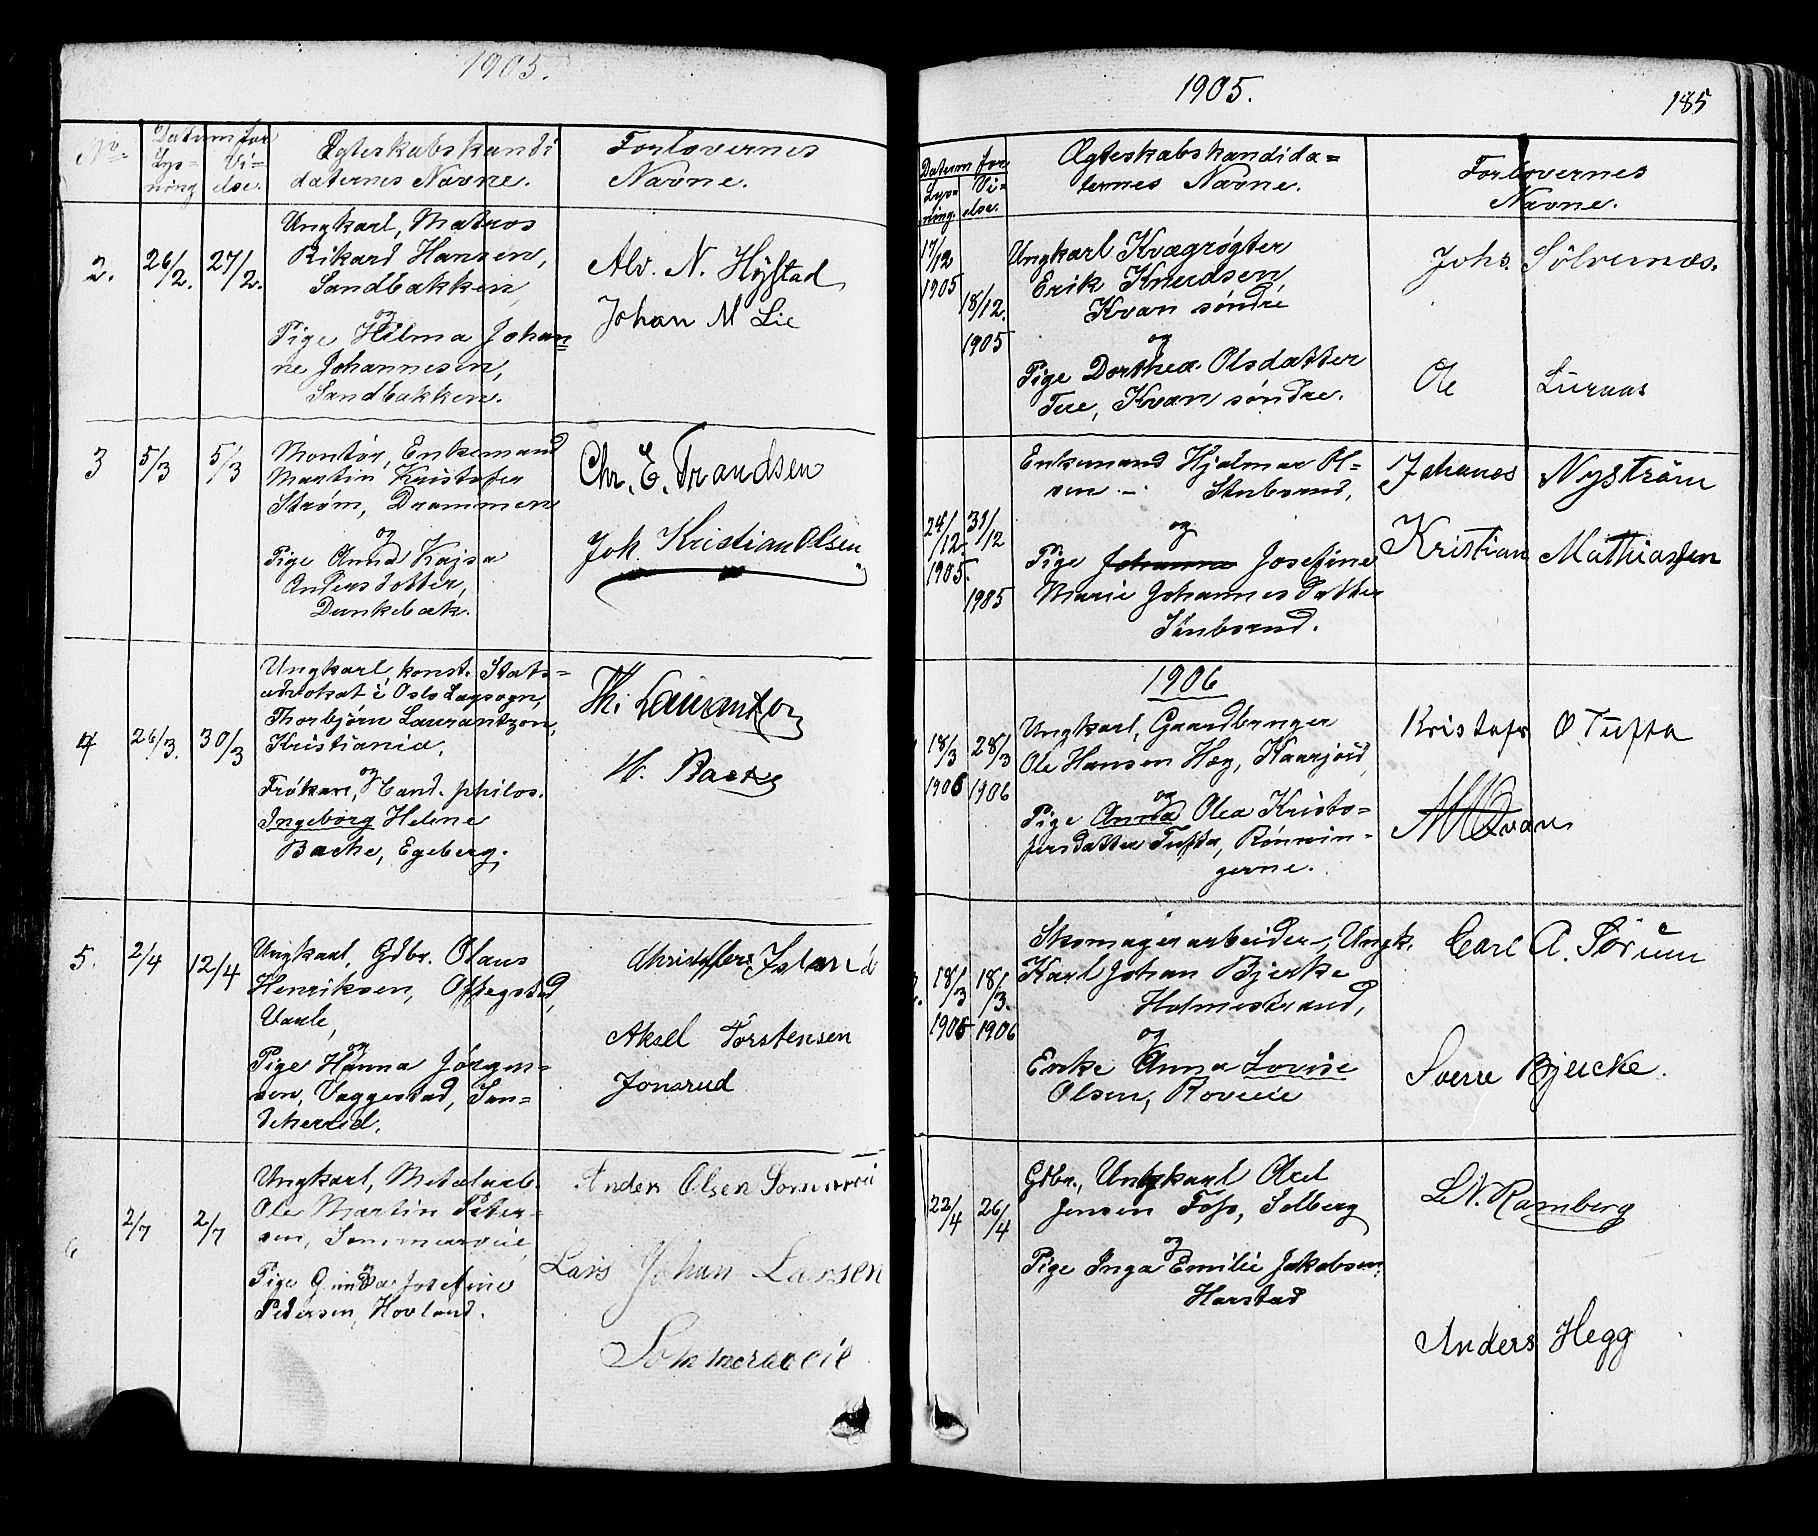 1905.
No.
Datum for
Lys-
ning
Vi-
else.
Ægteskabskandi
daternes Navne.
Forlovernes
Navne.
2.
26/2.
27/2.
Ungkarl, Matros
Rikard Hansen,
Sandbakken,
og
Pige Hilma Johan=
ne Johannesen,
Sandbakken.
Alv. N. Hÿstad
Johan M Lie
3
5/3
5/3
Montør, Enkemand
Martin Kristofer
Strøm, Drammen
og
Pige Anna Kajsa
Andersdotter,
Dunkebæk.
Chr. E. Trandsen
Joh. Kristian Olsen
4
26/3.
30/3
Ungkarl, konst. Stats-
advokat i Oslo Lagsogn,
Thorbjørn Laurantzon,
Kristiania,
og
Frøken, Cand. philos.
Ingeborg Helene
Backe, Egeberg.
Th. Laurantzon
H. Backe
5.
2/4
12/4
Ungkarl, Gdbr. Olaus
Henriksen, Offegstad,
Vaale,
og
Pige Hanna Jörgen-
sen, Vaggestad, San-
deherred.
Aksel Torstensen
Jonsrud
6
2/7
2/7
Ungkarl, Metalarb.
Ole Martin Peter-
sen, Sommerveie,
og
Pige Gunda Josefine
Pedersen, Hovland.
Anders Olsen Sommerveie
Lars Johan Larsen
Sommerveie
1905.
185
Datum for
Lys-
ning.
Vi-
else.
Ægteskabskandida=
ternes Navne.
Forlovernes
Navne.
17/12
1905
18/12.
1905
Ungkarl Kvægrøgter
Erik Knudsen
Kvan søndre
og
Pige Dorthea Olsdatter
Tue, Kvan søndre.
Johs. Sölvernæs.
Ole Luraas
24/12.
1905.
31/12
1905
Enkemand Hjalmar Ol-
sen.- Stubsrud,
og
Pige Johanna Josefine
Marie Johannesdatter
Stubsrud.
Johanes Nyström
Kristian Mathiassen
1906
18/3
1906
28/3
1906
Ungkarl, Gaardbruger
Ole Hansen Hæg, Kaarjord,
og
Pige Anna Olea Kristo=
fersdatter Tufta, Rønnin-
gerne.
Kristofr O. Tufta
18/3
1906
18/3.
1906
Skomagerarbeider, Ungk.
Karl Johan Bjerke
Holmestrand,
og
Enke Anna Lovise
Olsen, Roveie
Carl A. Torum
Sverre Bjercke.
22/4
26/4
Gdbr., Ungkarl Axel
Jensen Foss, Solberg
og
Pige Inga Emilie Jakobsen,
Harstad
L.N. Ramberg
Anders Hegg